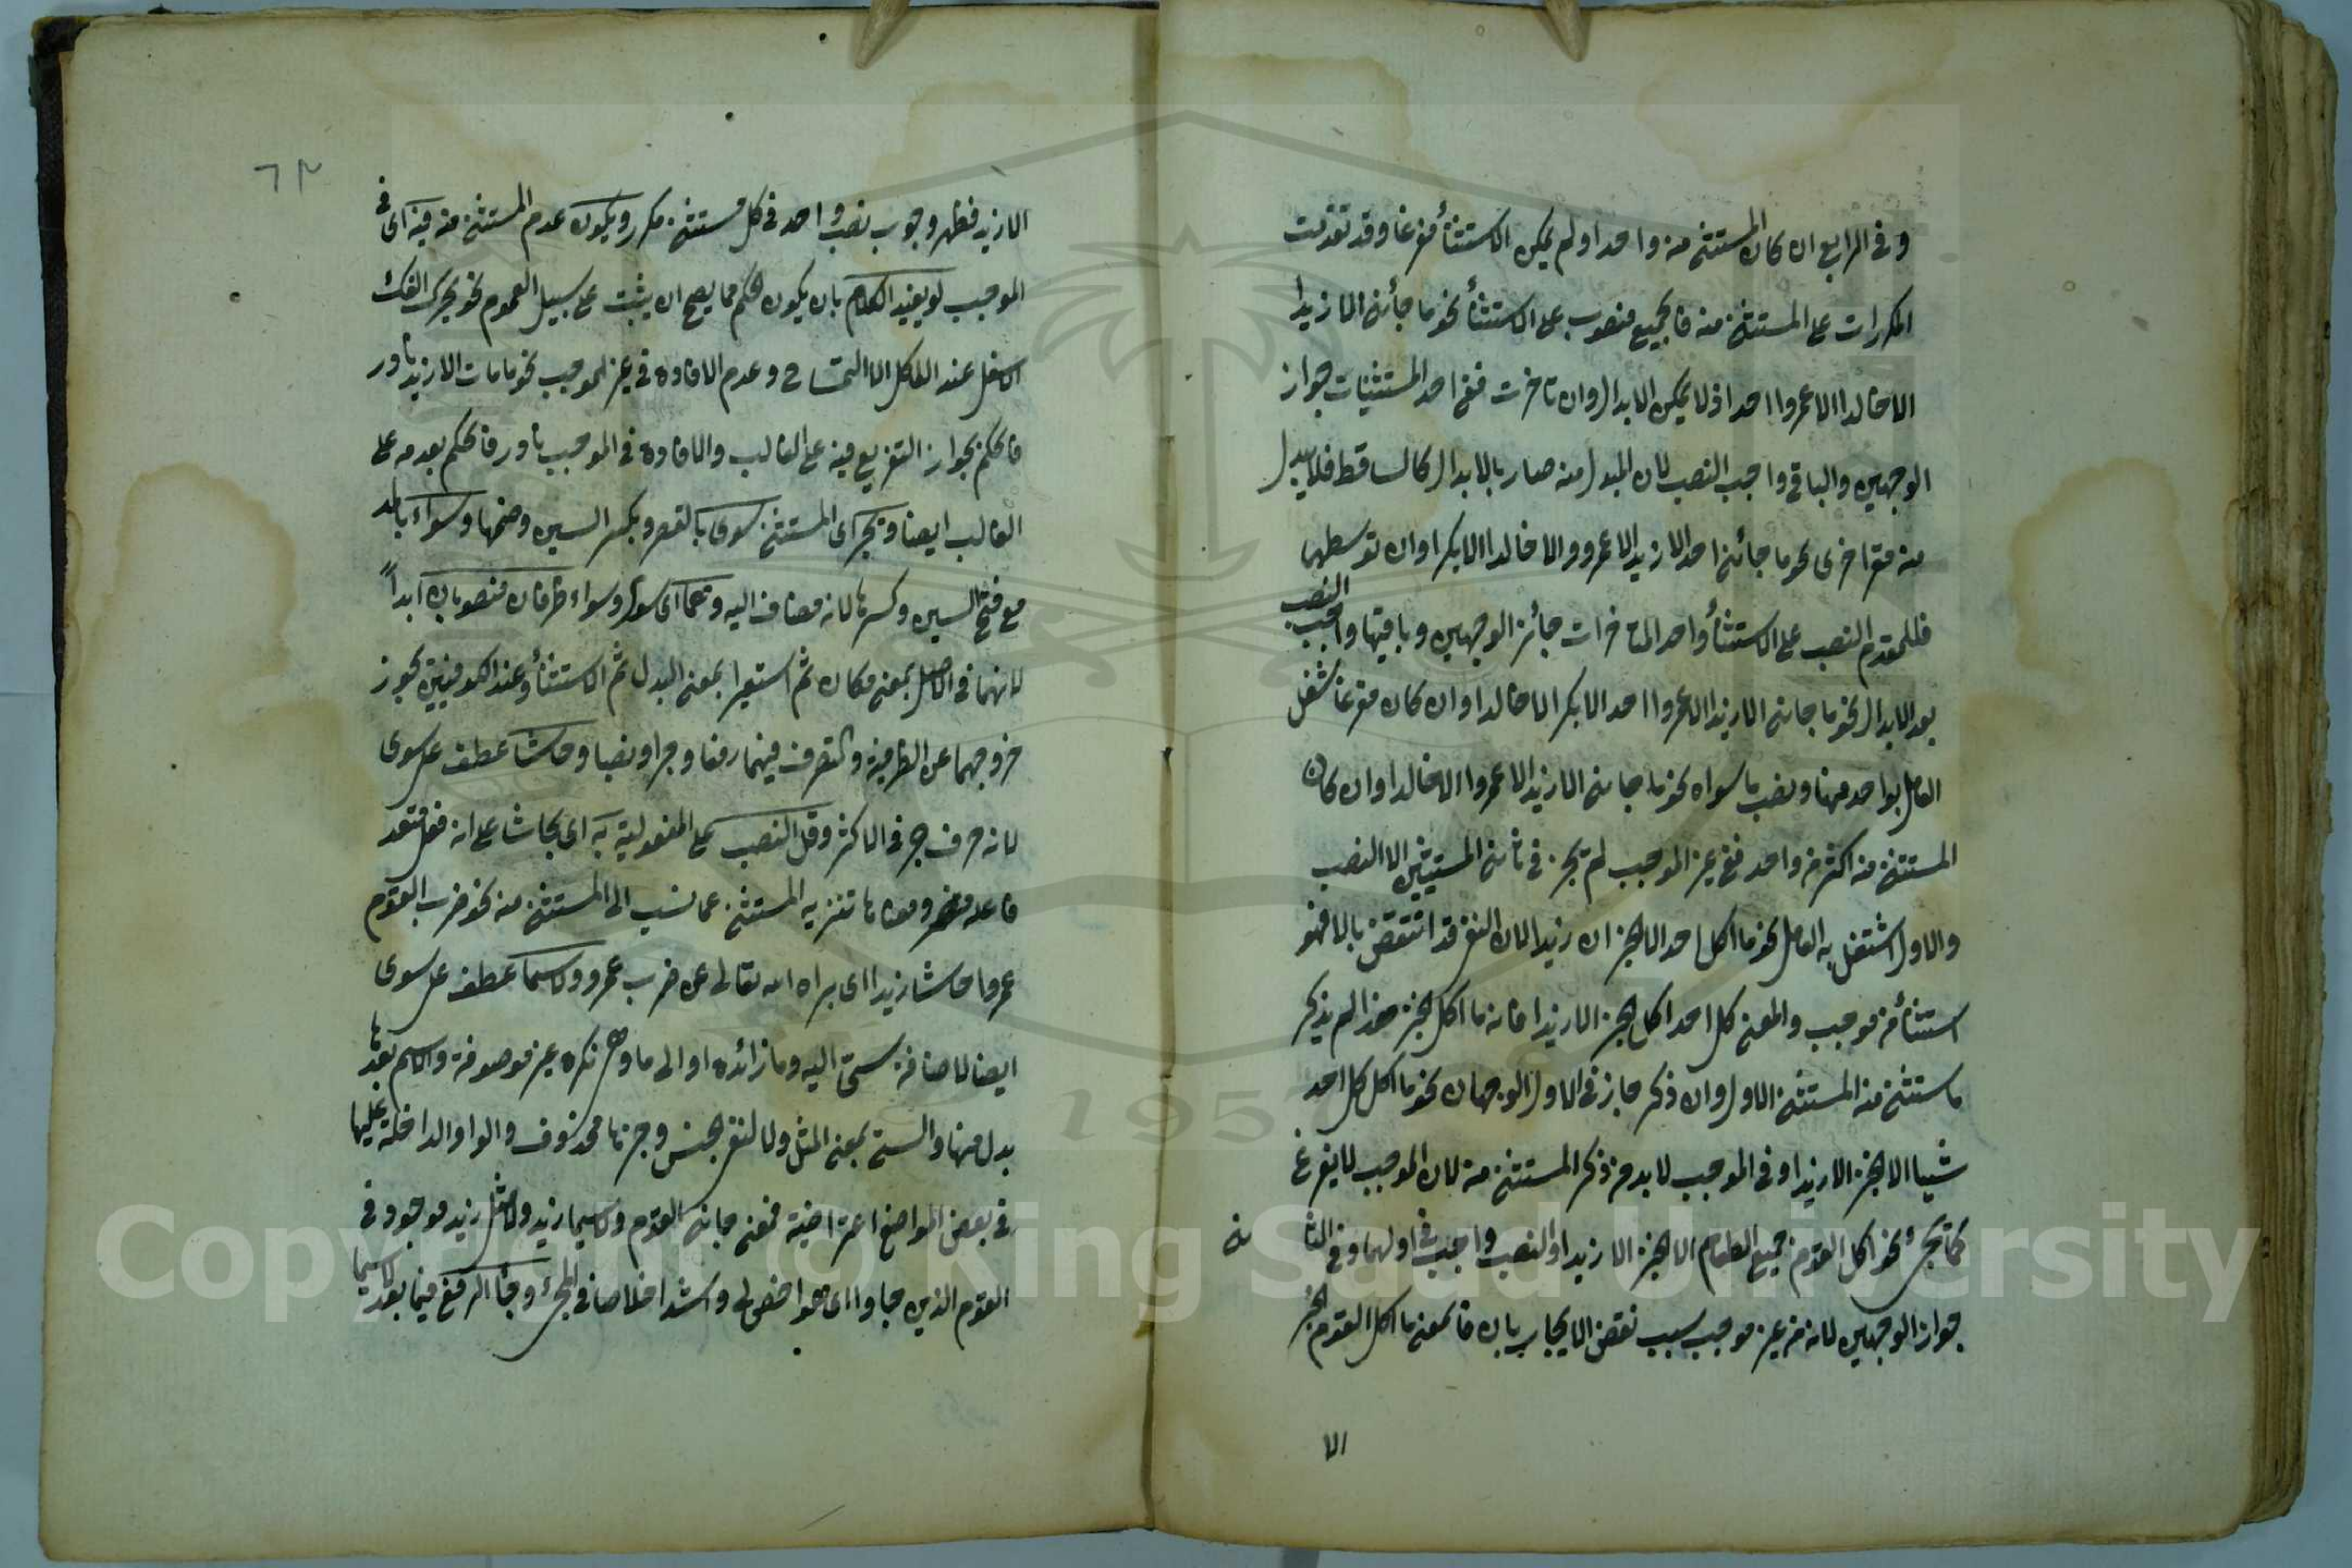 وفى الرابع ان كان المستثنى منه واحدا ولم يكن الاستثنأ مفرغا وقد تقدمت
المكررات على المستثنى منه فالجميع منصوب على الاستثنأ نحو ما جأنى الا زيدا
الا خالدا الا عمروا احد اذ لا يمكن الابدال وان تاخرت ففى احد المستثنيات جواز
الوجهين والباقى واجب النصب لان المبدل منه صار بالابدال كالساقط فلا يبدل
منه مرة اخرى نحو ما جائنى احد الا زيد الا عمرو والا خالدا الا بكرا وان توسطها
فللمقدم النصب على الاستثنأ واحد المتاخرات جائز الوجهين وباقيها واجب النصب
بعد الابدال نحو ما جانى الا زيدا الا عمروا احد الا بكر الا خالدا وان كان مفرغا شغل
العامل بواحد منها ونصب ما سواه نحو ما جانى الا زيد الا عمروا الا خالدا وان كان
المستثنى منه اكثر من واحد ففى غير الموجب لم يجز فى ثانى المستثنيين الا النصب
والاول اشتغل به العامل نحو ما اكل احد الا الخبز الا زيدا لان النفى قد انتقض بالا فهو
استثنأ من موجب والمعنى كل احد اكل الخبز الا زيدا فانه ما اكل الخبز هذا لم يذكر
ما ستثنى منه المستثنى الاول وان ذكر جاز فى الاول الوجهان نحو ما اكل كل احد
شيا الا الخبز الا زيدا وفى الموجب لا بد من ذكر المستثنى منه لان الموجب لا يفرغ
كما يجئ نحو اكل القوم جميع الطعام الا الخبز الا زيدا والنصب واجب فى اولهما وفى الثا
نى
جواز الوجهين لانه من غير موجب بسبب نقض الايجاب بان فالمعنى ما اكل القوم الخبز
الا
٦٣
الا زيد فظهر وجوب نصب واحد فى كل مستثنى مكرر ويكون عدم المستثنى منه فيه اى فى
الموجب لو يفيد الكلام بان يكون الحكم مما يصح ان يثبت على سبيل العموم نحو يحرك الفك
الاسفل عند الاكل الا التمساح وعدم الافادة فى غير الموجب نحو ما مات الا زيد نادر
فالحكم بجواز التفريع فيه على الغالب والافادة فى الموجب نادر فالحكم بعدمه على
الغالب ايضا ويجر اى المستثنى بسوى بالقصر وبكسر السين وضمها وسواء بالمد
مع فتح السين وكسرها لانه مضاف اليه وهما اى سوى وسواء ظرفان منصوبان ابداً
لانهما فى الاصل بمعنى مكان ثم استعيرا بمعنى البدل ثم الاستثنأ وعند الكوفيين يجوز
خروجهما عن الظرفية والتصرف فيهما رفعا وجرا ونصبا وحاشا عطف على سوى
لانه حرف جر فى الاكثر وقل النصب على المفعولية به اى بحاشا على انه فعل متعد
فاعله مضمر ومعناه تنزيه المستثنى عما نسب الى المستثنى منه نحو ضرب القوم
عمروا حاشا زيدا اى براه الله تعالى عن ضرب عمرو ولاسيما عطف على سوى
ايضا لاضافة سى اليه وما زائدة او الى ما وهى نكرة غير موصوفة والاسم بعدها
بدل منها والسى بمعنى المثل ولا لنفى الجنس وخبرها محذوف والواو الداخلة عليها
فى بعض المواضع اعتراضية فمعنى جانى القوم ولاسيما زيد ولا مثل زيد موجود فى
القوم الذين جاوا اى هو اخص لى واشد اخلاصا فى المجئ وجاأ الرفع فيما بعد لاسيما